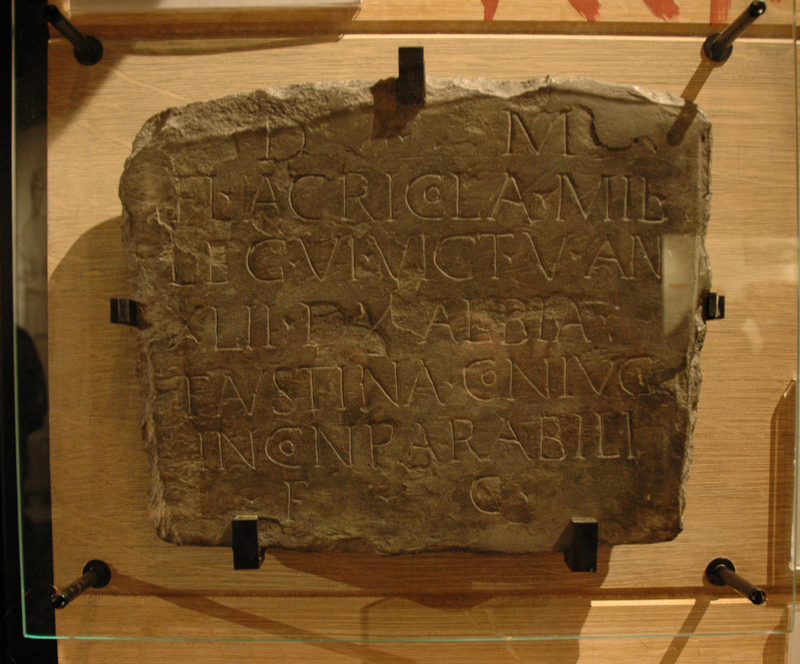 D M
FL·AGRICOLA·MIL
LEG·VI·VICT·V·AN
XLII·D·X·ALBIA·
FAVSTINA·CONIVGI
INCONPARABILI
F C